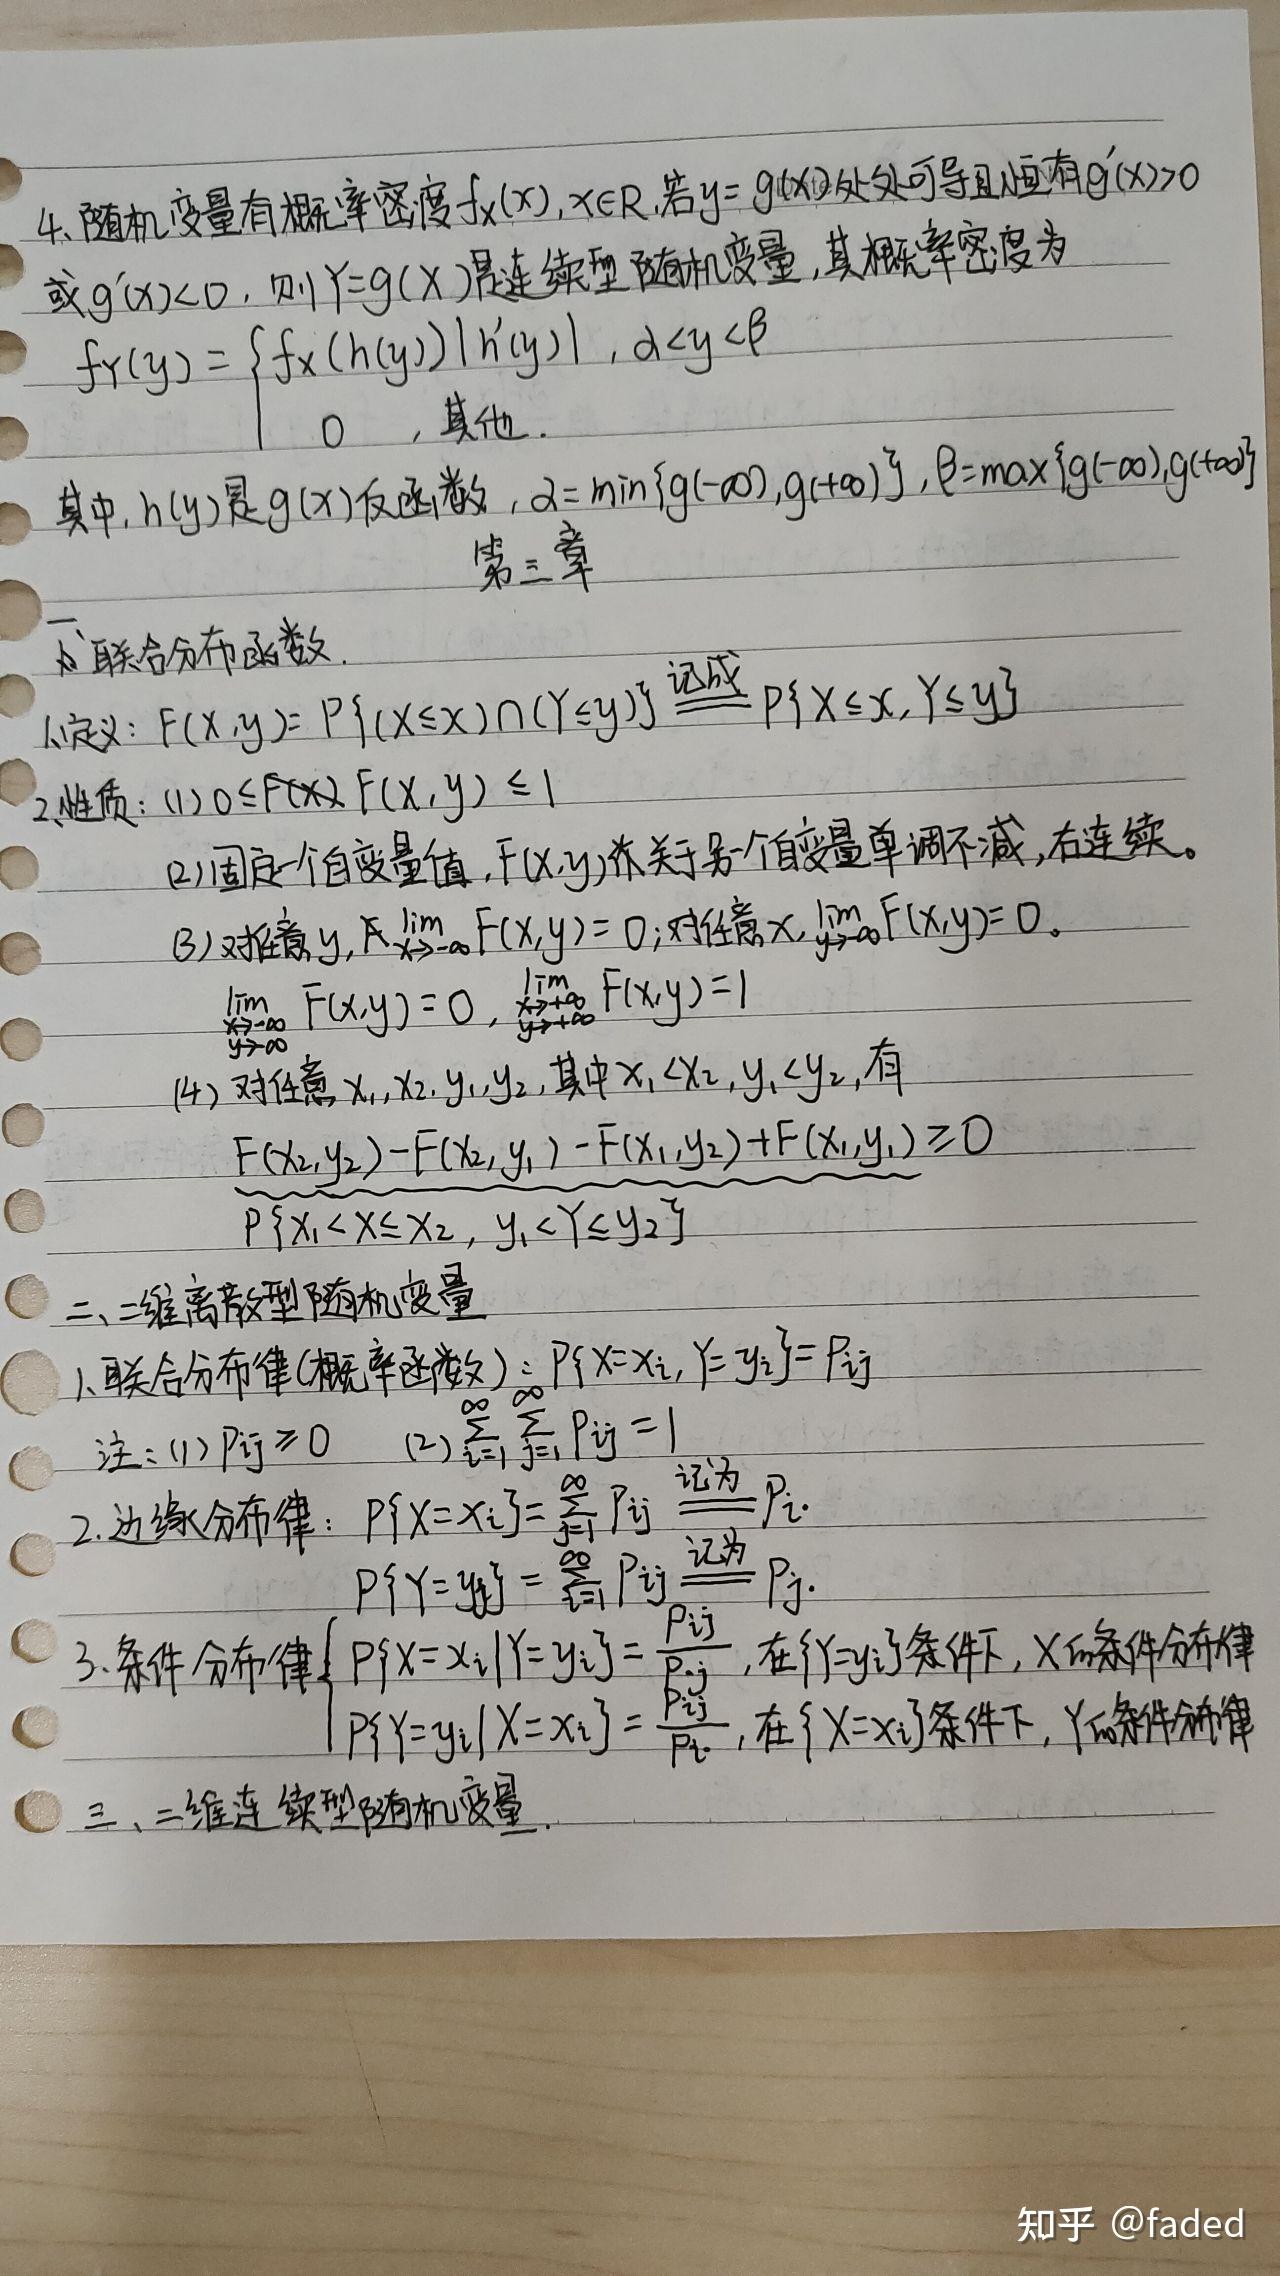 4、随机变量有概率密度fX(x), x∈R,若y=g(x)处处可导且恒有g'(x)>0
或g'(x)<0,则Y=g(X)是连续型随机变量,其概率密度为
fY(y)={fX(h(y))|h'(y)|, α<y<β
0 ,其他.
其中,h(y)是g(x)反函数, α=min{g(-∞),g(+∞)}, β=max{g(-∞),g(+∞)}
第三章
一、联合分布函数.
1、定义: F(x,y)= P{(X≤x)∩(Y≤y)} 记成 P{X≤x, Y≤y}
2、性质: (1) 0≤F(x,y)≤1
(2)固定一个自变量值,F(x,y)作关于另一个自变量单调不减,右连续。
(3)对任意y, lim x→-∞ F(x,y)=0;对任意x, lim y→-∞ F(x,y)=0。
lim x→-∞ y→∞ F(x,y)=0, lim x→+∞ y→+∞ F(x,y)=1
(4) 对任意x₁,x₂,y₁,y₂,其中x₁<x₂,y₁<y₂,有
F(x₂,y₂)-F(x₂,y₁)-F(x₁,y₂)+F(x₁,y₁)≥0
P{x₁<X≤x₂, y₁<Y≤y₂}
二、二维离散型随机变量
1、联合分布律(概率函数): P{X=xi, Y=yi}=Pij
注:(1) Pij≥0 (2) ∞∑i=1 ∞∑j=1 Pij=1
2.边缘分布律: P{X=xi}=∞∑j=1 Pij 记为 Pi.
P{Y=yj}=∞∑i=1 Pij 记为 Pj.
3.条件分布律{P{X=xi|Y=yi}=Pij/P.j,在{Y=yi}条件下,X的条件分布律
P{Y=yi|X=xi}=Pij/Pi.,在{X=xi}条件下,Y的条件分布律
三、二维连续型随机变量.
知乎 @faded